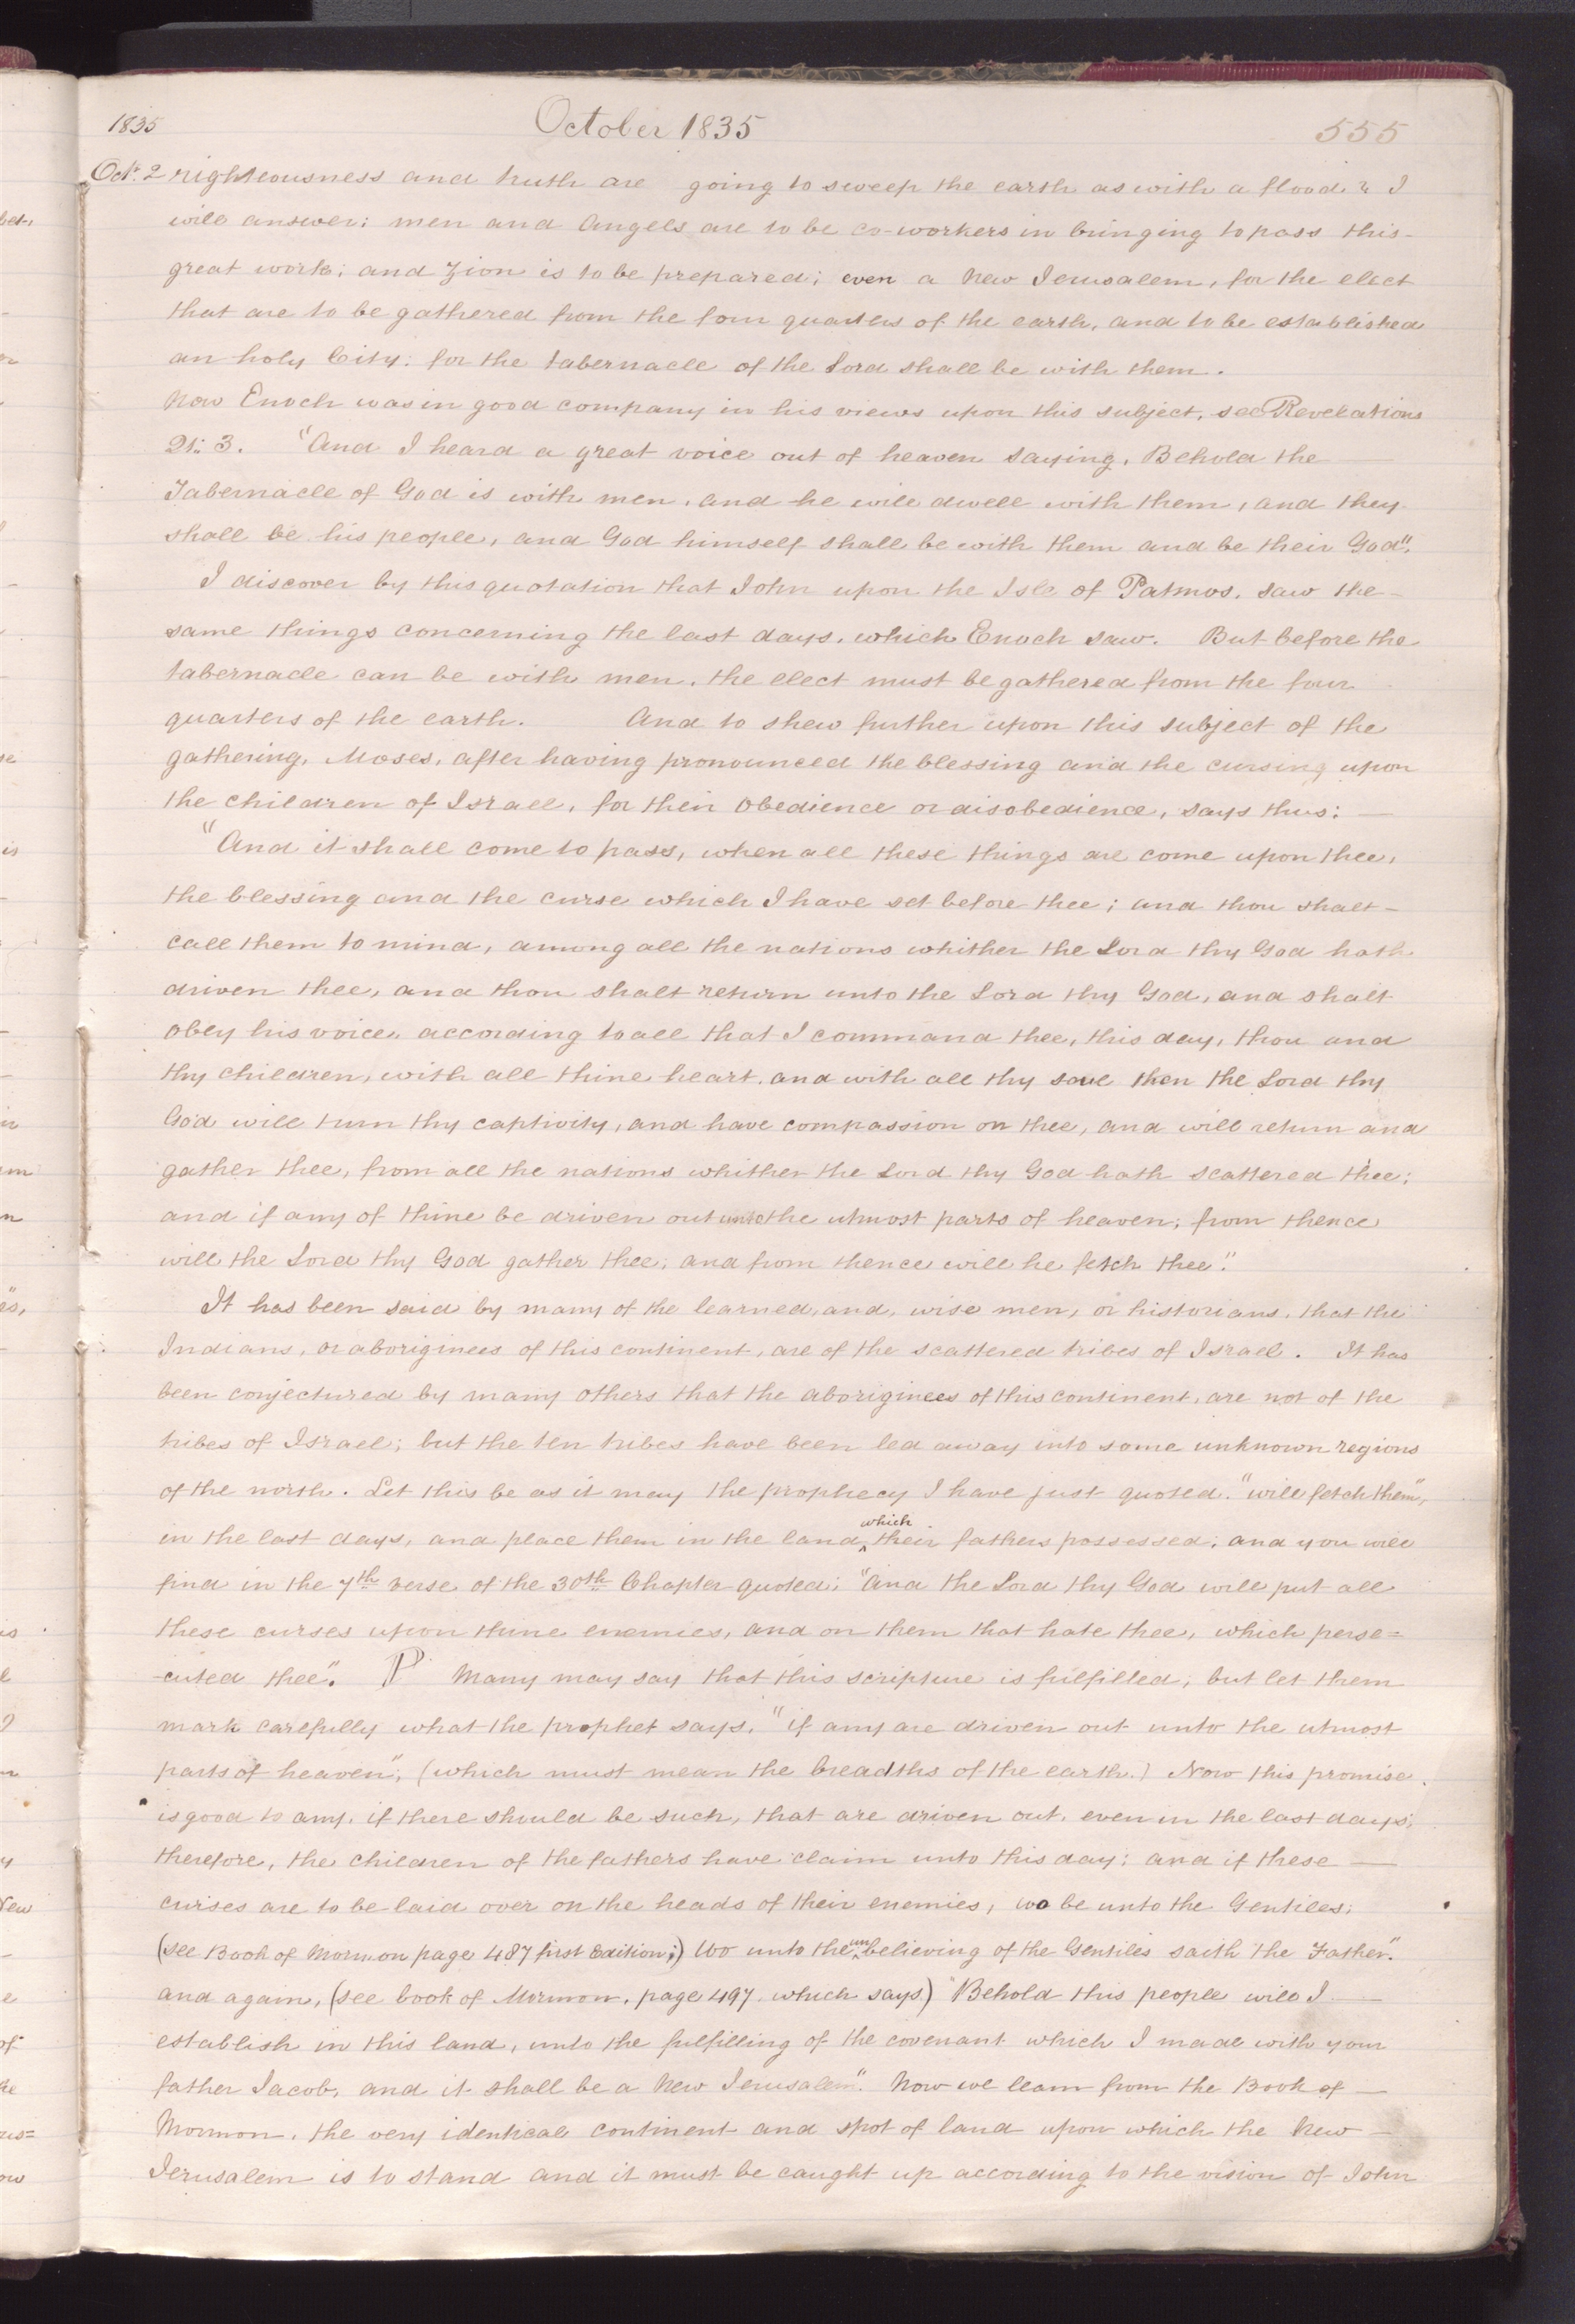 1835 October 1835 555
Oct. 2 righteousness and truth are going to sweep the earth as with a flood? I
will answer: men and Angels are to be co-workers in bringing to pass this
great work; and Zion is to be prepared; even a New Jerusalem, for the elect
that are to be gathered from the four quarters of the earth, and to be established
an holy City: for the tabernacle of the Lord shall be with them.
Now Enoch was in good company in his views upon this subject, see Revelations
21: 3. "And I heard a great voice out of heaven saying, Behold the
Tabernacle of God is with men, and he will dwell with them, and they
shall be his people, and God himself shall be with them and be their God".
I discover by this quotation that John upon the Isle of Patmos, saw the
same things concerning the last days, which Enoch saw. But before the
tabernacle can be with men, the elect must be gathered from the four
quarters of the earth. And to shew further upon this subject of the
gathering, Moses, after having pronounced the blessing and the cursing upon
the children of Israel, for their obedience or disobedience, says thus: —
"And it shall come to pass, when all these things are come upon thee,
the blessing and the curse which I have set before thee; and thou shalt
call them to mind, among all the nations whither the Lord thy God hath
driven thee, and thou shalt return unto the Lord thy God, and shalt
obey his voice, according to all that I command thee, this day, thou and
thy children, with all thine heart, and with all thy soul then the Lord thy
God will turn thy captivity, and have compassion on thee, and will return and
gather thee, from all the nations whither the Lord thy God hath scattered thee;
and if any of thine be driven out unto the utmost parts of heaven; from thence
will the Lord thy God gather thee; and from thence will he fetch thee."
It has been said by many of the learned, and, wise men, or historians, that the
Indians, or aboriginees of this continent, are of the scattered tribes of Israel. It has
been conjectured by many others that the aboriginees of this continent, are not of the
tribes of Israel; but the ten tribes have been led away into some unknown regions
of the north. Let this be as it may the prophecy I have just quoted. "will fetch them",
in the last days, and place them in the land ^which their fathers possessed; and you will
find in the 7th verse of the 30th Chapter quoted; "And the Lord thy God will put all
these curses upon thine enemies, and on them that hate thee, which perse=
-cuted thee". P Many may say that this scripture is fulfilled, but let them
mark carefully what the prophet says, "if any are driven out unto the utmost
parts of heaven"; (which must mean the breadths of the earth.) Now this promise
is good to any, if there should be such, that are driven out, even in the last days;
therefore, the children of the fathers have claim unto this day; and if these —
curses are to be laid over on the heads of their enemies, wo be unto the Gentiles;
(see Book of Mormon page 487 first Edition;) Wo unto the ^unbelieving of the Gentiles saith the Father".
and again, (see book of Mormon, page 497 which says) "Behold this people will I —
establish in this land, unto the fulfilling of the covenant which I made with your
father Jacob, and it shall be a New Jerusalem". Now we learn from the Book of —
Mormon, the very identical continent and spot of land upon which the New —
Jerusalem is to stand and it must be caught up according to the vision of John